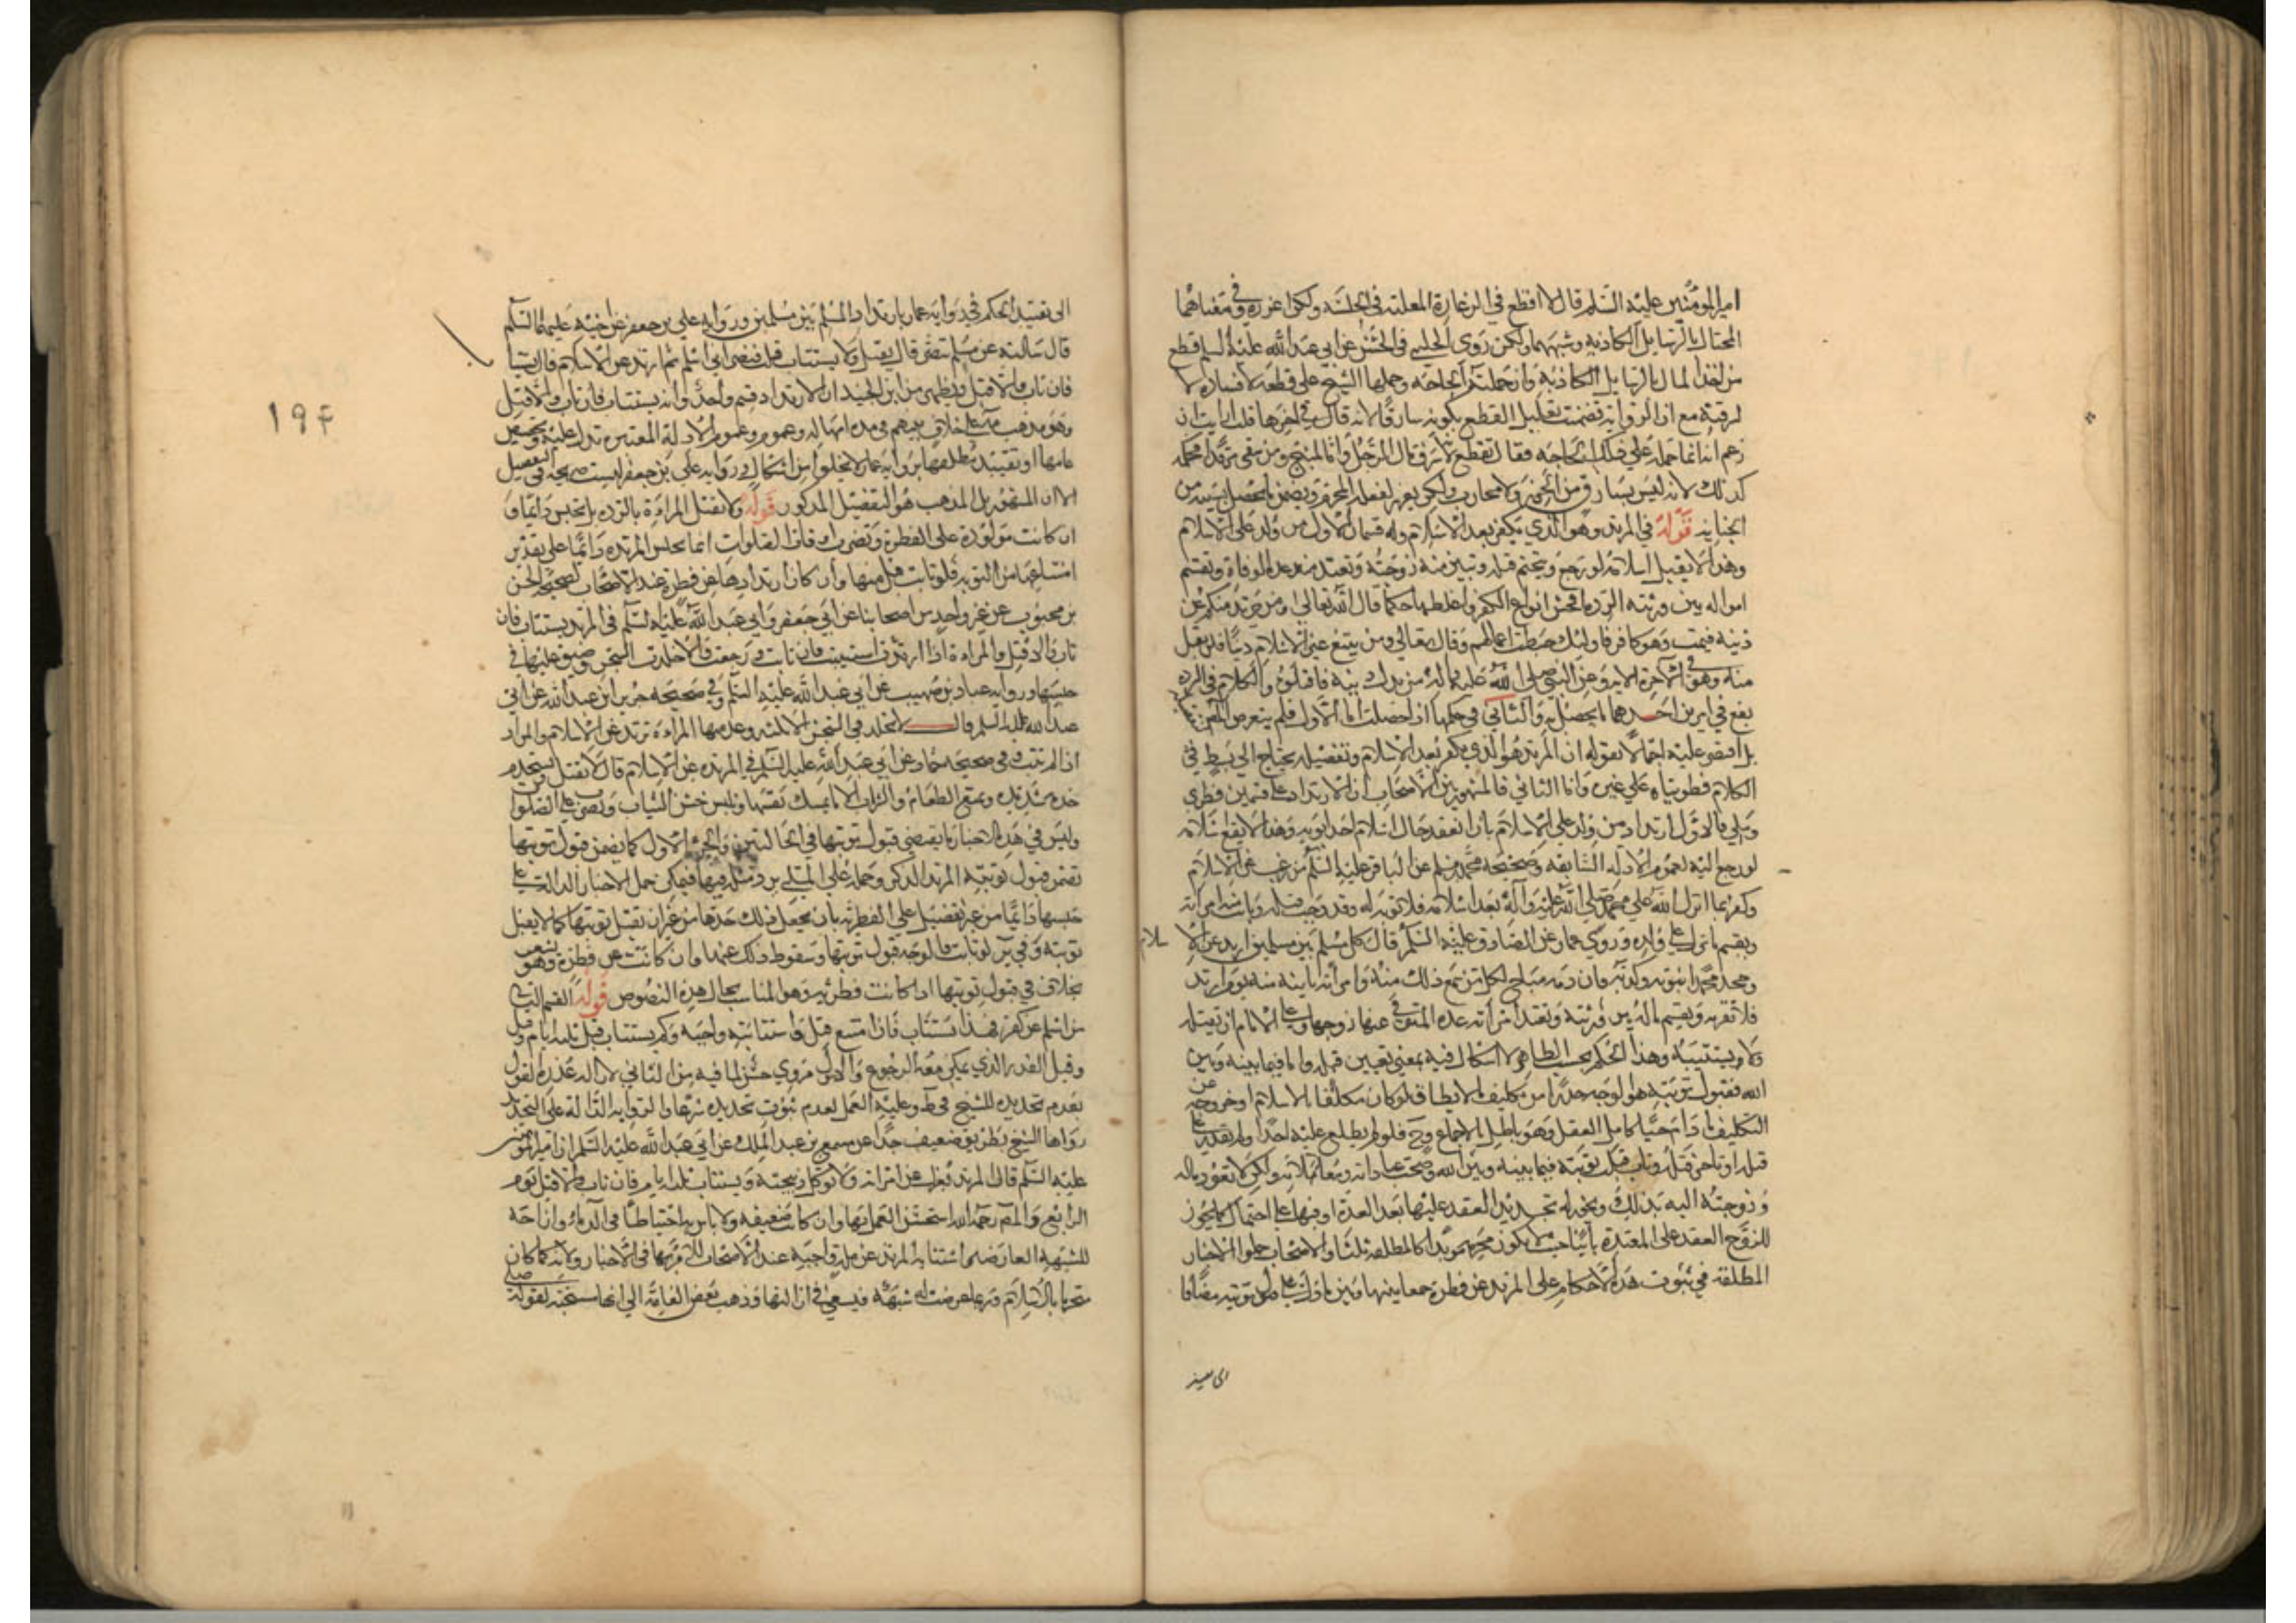 امير المومنين عليه السلم قال لا اقطع في الدغارة المعلنه في الخلسه ولكن اعزره وفي معناهما
المحتال بالرسايل الكاذبه وشبههما ولكن روى الحلبي في الحسن عن ابي عبد الله عليه السلم قطع
من اخذ المال بالرسايل الكاذبة وان حملته الحاجه وحملها الشيخ على قطعه لافساده لا
لسرقته مع ان الرواية تضمنت تعليل القطع بكونه سارقا لانه قال في اخرها قلت ارايت ان
زعم انه انما حمله على ذلك الحاجه فقال تقطع لانه سرق مال الرجل واما المبنج ومن سقى مرقدا فحكمه
كذلك لانه ليس بسارق من الحرز ولا محارب ولكن يعزر لفعله المحرم ويضمن ما يحصل بسببه من
الجنايه قوله في المرتد وهو الذي يكفر بعد الاسلام وله قسمان الاول من ولد على الاسلام
وهذا لا يقبل اسلامه لو رجع ويتحتم قتله وتبين منه زوجته وتعتد منه عدة الوفاة وتقسم
امواله بين ورثته الردة افحش انواع الكفر واغلظها حكما قال الله تعالى ومن يرتدد منكم عن
دينه فيمت وهو كافر فاولئك حبطت اعمالهم وقال تعالى ومن يبتغ غير الاسلام دينا فلن يقبل
منه وهو في الاخرة الاية وعن النبي صلى الله عليه واله من بدل دينه فاقتلوه والكلام في الرده
يقع في امرين احدهما ما يحصل به والثاني في حكمها اذا حصلت اما الاول فلم يتعرض المص له هنا
بل اقتصر عليه اجمالا بقوله ان المرتد هو الذي يكفر بعد الاسلام وتفصيله يحتاج الى بسط في
الكلام فطويناه على غيره واما الثاني فالمشهور بين الاصحاب ان الارتداد على قسمين فطري
وملي فالاول ارتداد من ولد على الاسلام بان انعقد حال اسلام احد ابويه وهذا لا يقبل اسلامه
لو رجع اليه لعموم الادله السابقه وصحيحه محمد بن مسلم عن الباقر عليه السلم من رغب عن الاسلام
وكفر بما انزل الله على محمد صلى الله عليه وآله بعد اسلامه فلا توبه له وقد وجب قتله وبانت منه امراته
ويقسم ما ترك على ولده وروى عمار عن الصادق عليه السلم قال كل مسلم بين مسلمين ارتد عن الا
سلام
وجحد محمدا نبوته وكذبه فان دمه مباح لكل من سمع ذلك منه وامراته باينه منه يوم ارتد
فلا تقربه ويقسم ماله بين ورثته وتعتد امرأته عده المتوفى عنها زوجها وعلى الامام ان يقتله
ولا يستتيبه وهذا الحكم بحسب الظاهر لا اشكال فيه بمعنى تعيين قتله واما فيما بينه وبين
الله فقبول توبته هو الوجه حذرا من تكليف ما لا يطاق لو كان مكلفا بالاسلام او خروجه عن
التكليف ما دام حيا كامل العقل وهو باطل بالاجماع وح فلو لم يطلع عليه احد او لم يقدر على
قتله او تاخر قتله وتاب قبلت توبته فيما بينه وبين الله وصحت عباداته ومعاملاته ولكن لا تعود ماله
وزوجته اليه بذلك ويجوز له تجديد العقد عليها بعد العدة او فيها على احتمال كما يجوز
للزوج العقد على المعتدة باينا حيث لا يكون محرمه مؤبدا كالمطلقه ثلثا والاصحاب حملوا الاخبار
المطلقه في ثبوت هذه الاحكام على المرتد عن فطرة جمعا بينها وبين ما دل على قبول توبته مضافا
الى تقييد
الى تقييد الحكم في رواية عمار بارتداد المسلم بين مسلمين ورواية علي بن جعفر عن اخيه عليهما السلم
قال سالته عن مسلم تنصر قال يقتل ولا يستتاب قلت فنصراني اسلم ثم ارتد عن الاسلام قال يستتاب
فان تاب والا قتل ويظهر من ابن الجنيد ان الارتداد قسم واحد وانه يستتاب فان تاب والا قتل
وهو مذهب العامه على خلاف بينهم في مدة امهاله وعموم الادلة المعتبره تدل عليه وتخصيص
عامها او تقييد مطلقها برواية عمار لا يخلوا من اشكال ورواية علي بن جعفر ليست صريحه في التفصيل
الا ان المشهور بل المذهب هو التفصيل المذكور قوله ولا تقتل المراءة بالردة بل تحبس دايما و
ان كانت مولودة على الفطرة وتضرب اوقات الصلوات انما تحبس المرتده دائما على تقدير
امتناعها من التوبه فلو تابت قبل منها وان كان ارتدادها عن فطرة عند الاصحاب لصحيحه الحسن
بن محبوب عن غير واحد من اصحابنا عن ابي جعفر وابي عبد الله عليهما السلم في المرتد يستتاب فان
تاب والا قتل والمراءة اذا ارتدت استتيبت فان تابت ورجعت والا خلدت السجن وضيق عليها في
حبسها ورواية عباد بن صهيب عن ابي عبد الله عليه السلم وفي صحيحه حريز عن ابي
عبد الله عليه السلم قال لا يخلد في السجن الا ثلثه وعد منها المراءة ترتد عن الاسلام والمراد
اذا لم تتب وفي صحيحه حماد عن ابي عبد الله عليه السلم في المرتده عن الاسلام قال لا تقتل وتستخدم
خدمه شديده وتمنع الطعام والشراب الا ما يمسك نفسها وتلبس خشن الثياب وتضرب على الصلوات
وليس في هذه الاخبار ما يقتضي قبول توبتها في الحالتين والخبر الاول كما تضمن قبول توبتها
تضمن قبول توبة المرتد الذكر وحمله على الملي يرد مثله فيها فيمكن حمل الاخبار الدالة على
حبسها دائما من غير تفصيل على الفطرية بان يجعل ذلك حدها من غير ان تقبل توبتها كما لا يقبل
توبته وفي ير لو تابت فالوجه قبول توبتها وسقوط ذلك عنها وان كانت عن فطرة وهو يشعر
بخلاف في قبول توبتها اذا كانت فطرية وهو المناسب بحال هذه النصوص قوله القسم الثاني
من اسلم عن كفر فهذا يستتاب فان امتنع قتل واستتابته واجبة وكم يستتاب قيل ثلثه ايام وقيل
وقيل القدر الذي يمكن معه الرجوع والاول مروي حسن لما فيه من التاني لازاله عذره القول
بعدم تحديده للشيخ في ط وعليه العمل لعدم ثبوت تحديده شرعا والرواية الدالة على التحديد
رواها الشيخ بطريق ضعيف جدا عن مسمع بن عبد الملك عن ابي عبد الله عليه السلم ان امير المومنين
عليه السلم قال المرتد تعزل عنه امراته ولا توكل ذبيحته ويستتاب ثلثه ايام فان تاب والا قتل يوم
الرابع والمص رحمه الله استحسن العمل بها وان كانت ضعيفه ولا باس به احتياطا في الدماء وازاحه
للشبهه العارضه استتابه المرتد عن مله واجبة عند الاصحاب للامر بها في الاخبار ولانه كما كان
محترما بالاسلام وربما عرضت له شبهه فيسعى في ازالتها وذهب بعض العامه الى انها مستحبه لقوله صلى
١٩۴